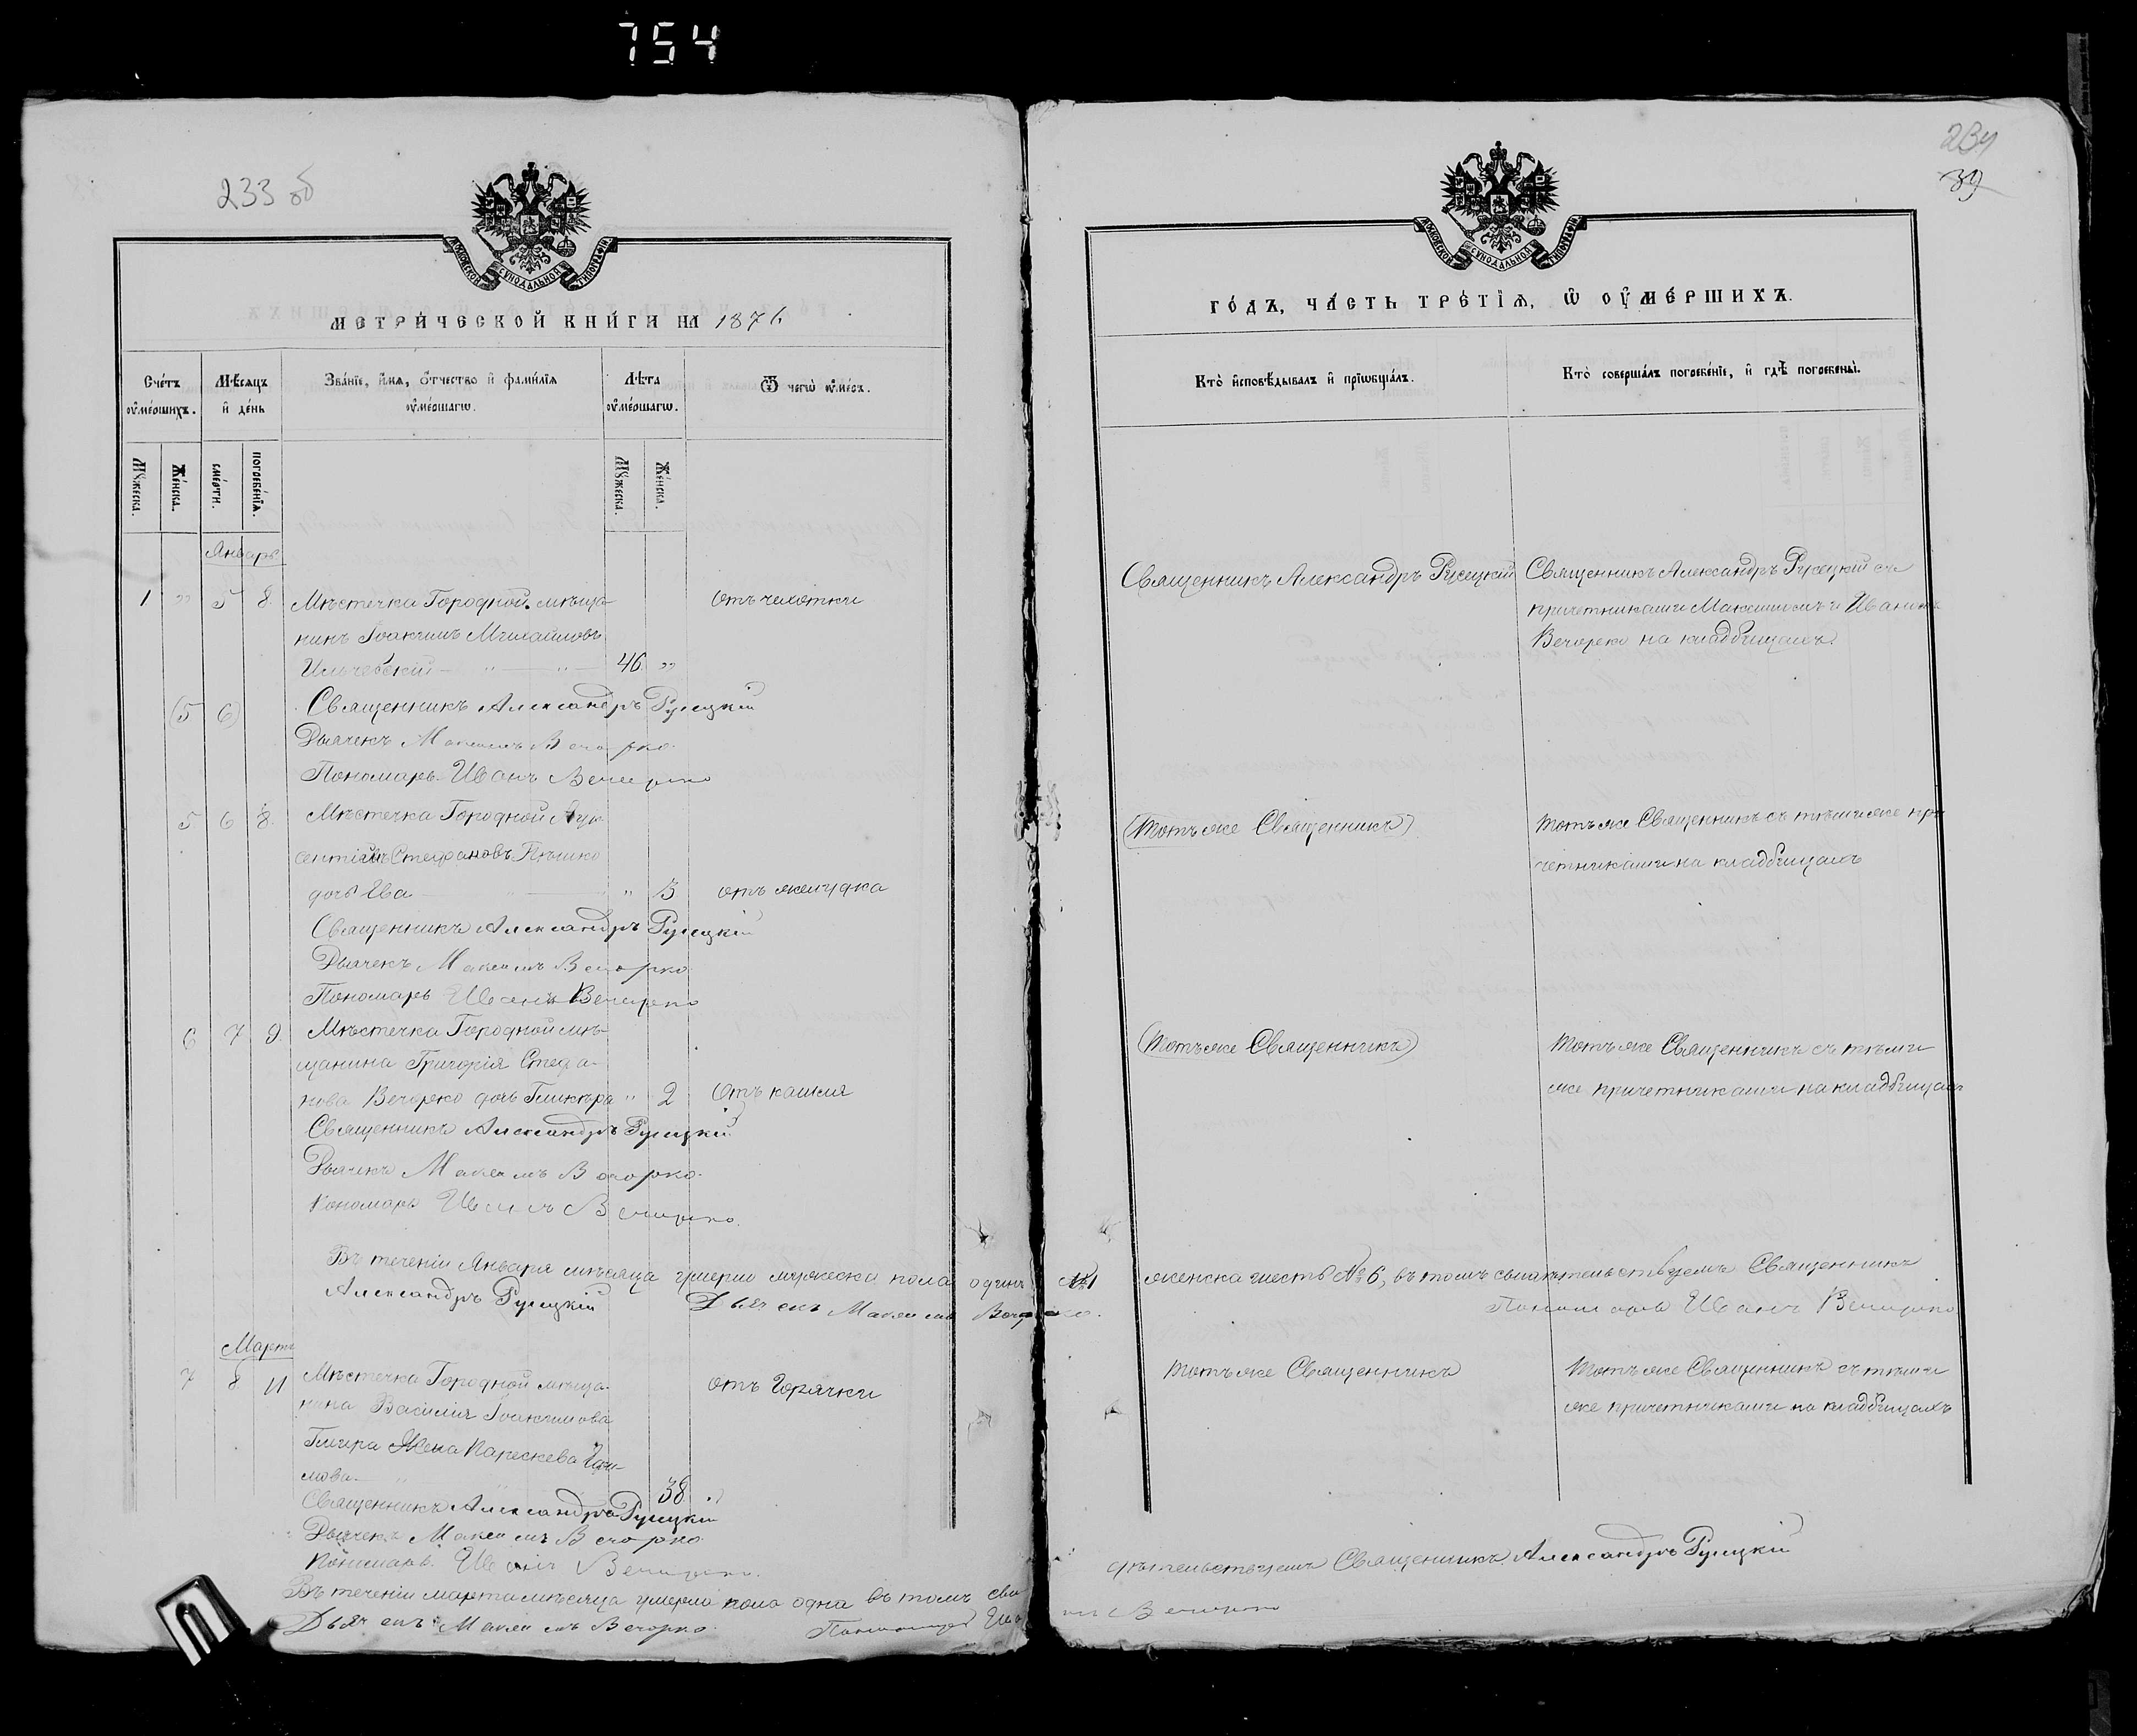 754
233 об
234
39
МОСКОВСКОЙ СѴНОДАЛЬНОЙ ТИПОГРАФІИ
МЕТРИ́ЧЕСКОЙ КНИ́ГИ НА 1876
Сче́тъ ᲂу҆ме́ршихъ.
Мѣ́сяцъ и҆ де́нь
Зва́нїе, и҆́мѧ, ѻ҆́тчество и҆ фами́лїѧ ᲂу҆ме́ршагѡ.
Лѣ́та ᲂу҆ме́ршагѡ.
Ѿ чегѡ̀ ᲂу҆ме́ръ.
Мꙋ́жеска.
Же́нска.
сме́рти.
погребе́нїѧ.
Мꙋ́жеска.
Же́нска.
Январь
1 " 5 8. Мѣстечка Городной мѣща- отъ чахотки
нинъ Іоакимъ Михайловъ
Ильчевскій — " — " — 46 "
(5 6) Священникъ Александръ Русецкій
Дьячекъ Максимъ Вечорко.
Пономарь Иванъ Вечорко
5 6 8. Мѣстечка Городной
Стефановъ
дочь Ева " 3 отъ желудка
Священникъ Александръ Русецкій
Дьячекъ Максимъ Вечорко
Пономарь Иванъ Вечорко
6 7 9. Мѣстечка Городной мѣ-
щанина Григорія Стефа-
нова Вечорко дочь Гликѣра " 2 Отъ кашля
Священникъ Александръ Русецкій
Дьячекъ Максимъ Вечорко.
Пономарь Иванъ Вечорко.
Въ теченіи Января мѣсяца умерло мужеска пола одинъ №1
Александръ Русецкій Дьячекъ Максимъ Вечорко.
Мартъ
7 8 11 Мѣстечка Городной мѣща- отъ Горячки
нина Василія Іоакимова
Жена Параскева
мова — " 38
Священникъ Александръ Русецкій
Дьячекъ Максимъ Вечорко.
Пономарь Иванъ Вечорко.
Въ теченіи марта мѣсяца умерло пола одна въ томъ сви
Дьячекъ Максимъ Вечорко. Пономарь Ива
МОСКОВСКОЙ СѴНОДАЛЬНОЙ ТИПОГРАФІИ
ГО́ДЪ, ЧА́СТЬ ТРЕ́ТІѦ, Ѽ ОУ҆МЕ́РШИХЪ.
Кто̀ и҆сповѣ́дывалъ и҆ прїѡбща́лъ.
Кто̀ соверша́лъ погребе́нїе, и҆ гдѣ̀ погребены̀.
Священникъ Александръ Русецкій Священникъ Александръ Русецкій съ
причетниками Максимомъ и Иваномъ
Вечорко на кладбищахъ.
(Тотъ же Священникъ) Тотъ же Священникъ съ тѣми же при
четниками на кладбищахъ
(Тотъ же Священникъ) Тотъ же Священникъ съ тѣми
же причетниками на кладбищахъ
женска шесть №6, въ томъ свидѣтельствуемъ Священникъ
Пономарь Иванъ Вечорко
Тотъ же Священникъ Тотъ же Священникъ съ тѣми
же причетниками на кладбищахъ
дѣтельствуемъ Священникъ Александръ Русецкій
нъ Вечорко